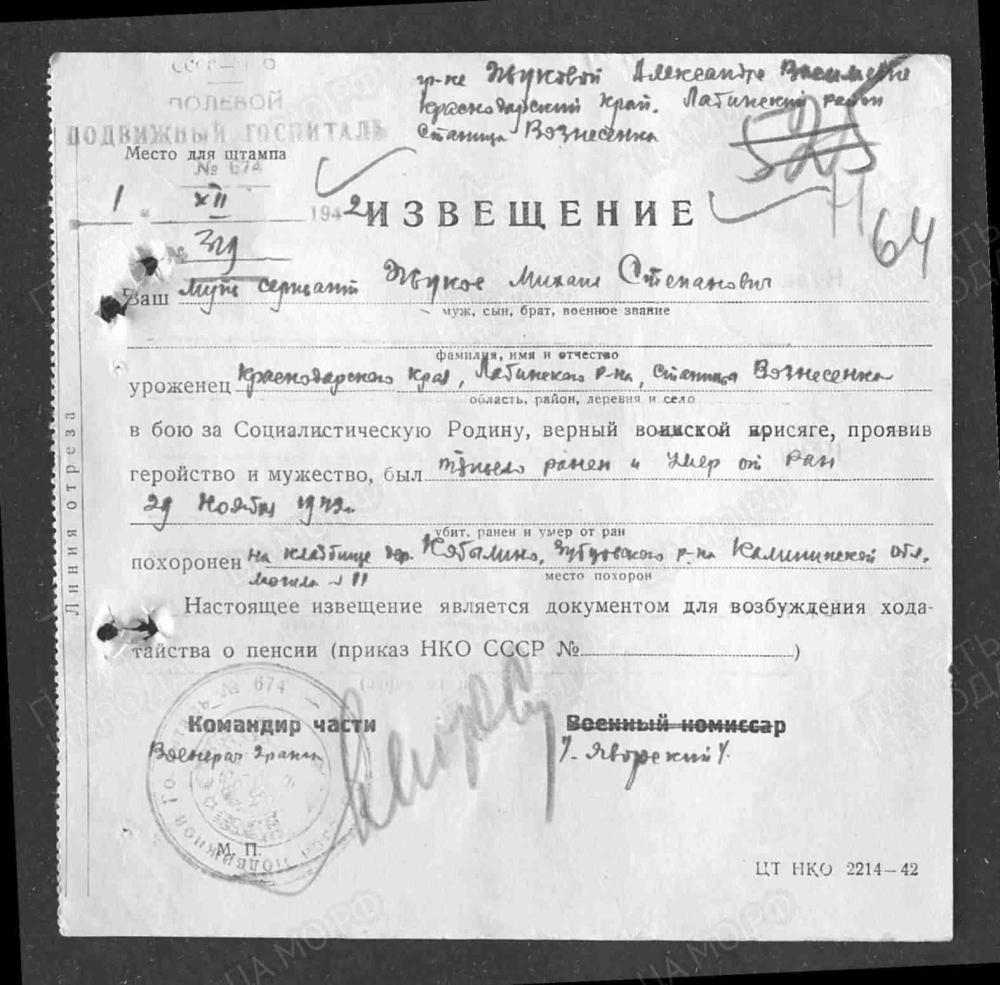 СССР — НКО
ПОЛЕВОЙ
ПОДВИЖНЫЙ ГОСПИТАЛЬ
Место для штампа
№ 674
гр-ке Жуковой Александре
Краснодарский Край. Лабинский район
Станица Вознесенка
525
1 " XII 1942
ИЗВЕЩЕНИЕ
64
№ 329
Ваш муж сержант Жуков Михаил Степанович
муж, сын, брат, военное звание
фамилия, имя и отчество
уроженец Краснодарского края, Лабинского р-на, станица Вознесенка
область, район, деревня и село
в бою за Социалистическую Родину, верный воинской присяге, проявив
геройство и мужество, был тяжело ранен и умер от ран
29 Ноября 1942г.
убит, ранен и умер от ран
похоронен на кладбище дер. Кобылино, Зубцовского р-на Калининской обл.
могила № 11
место похорон
Линия отреза
Настоящее извещение является документом для возбуждения хода-
тайства о пенсии (приказ НКО СССР № )
Командир части
Военный комиссар
Военврач 2 ранга
/. Яворский /.
№ 674
М. П.
ЦТ НКО 2214—42